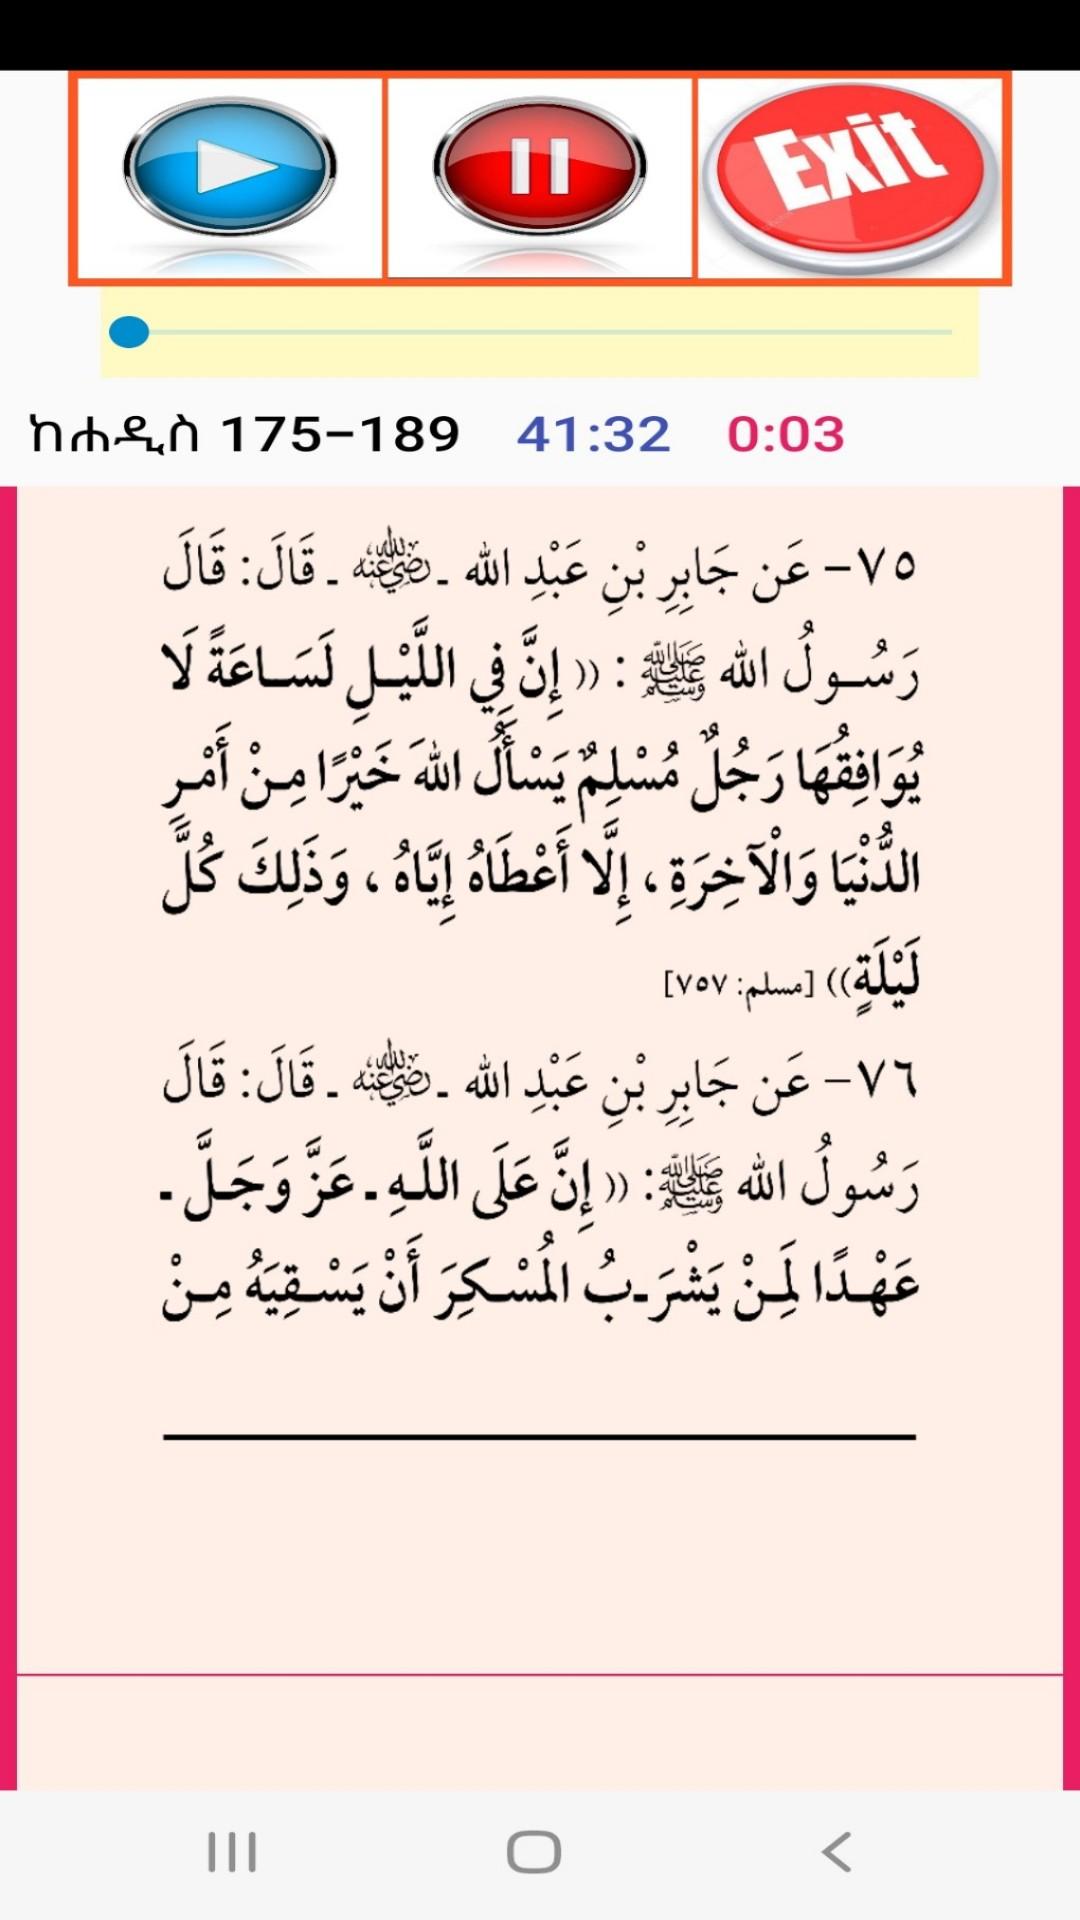 Exit
ከሐዲስ 175-189 41:32 0:03
٧٥- عَن جَابِرِ بْنِ عَبْدِ الله ـ رضي الله عنه ـ قَالَ: قَالَ
رَسُـولُ الله ﷺ : (( إِنَّ فِي اللَّيْـلِ لَسَـاعَةً لَا
يُوَافِقُهَا رَجُلٌ مُسْلِمٌ يَسْأَلُ اللهَ خَيْرًا مِـنْ أَمْـرِ
الدُّنْيَا وَالْآخِرَةِ ، إِلَّا أَعْطَاهُ إِيَّاهُ ، وَذَلِكَ كُلَّ
لَيْلَةٍ)) [مسلم: ٧٥٧]
٧٦- عَن جَابِرِ بْنِ عَبْدِ الله ـ رضي الله عنه ـ قَالَ: قَالَ
رَسُولُ الله ﷺ: (( إِنَّ عَلَى اللَّـهِ ـ عَزَّ وَجَـلَّ ـ
عَهْـدًا لِمَـنْ يَشْرَـبُ المُسْـكِرَ أَنْ يَسْـقِيَهُ مِـنْ